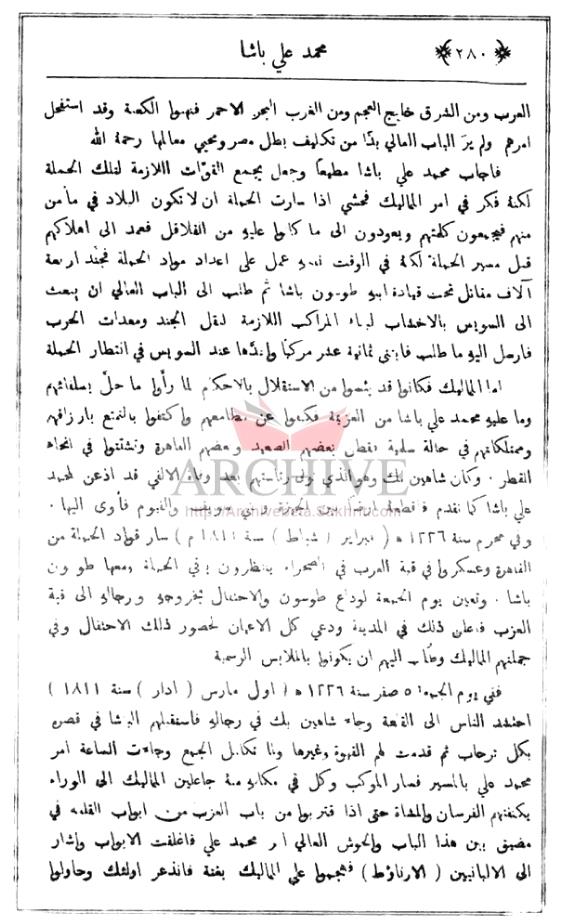 ﴿٢٨٠﴾
محمد علي باشا
العرب ومن الشرق خليج العجم ومن الغرب البحر الاحمر فنهبوا الكعبة وقد استفحل
امرهم ولم يرَ الباب العالي بدًّا من تكليف بطل مصر ومحيي معالمها رحمة الله
فاجاب محمد علي باشا مطيعًا وجعل يجمع القوّات اللازمة لتلك الحملة
لكنهُ فكر في امر المماليك فخشي اذا سارت الحملة ان لا تكون البلاد في مأمن
منهم فيجمعون كلمتهم ويعودون الى ما كانوا عليهِ من القلاقل فعمد الى اهلاكهم
قبل مسير الحملة لكنهُ في الوقت نفسهِ عمل على اعداد مواد الحملة فجند اربعة
آلاف مقاتل تحت قيادة ابنهِ طوسون باشا ثم طلب الى الباب العالي ان يبعث
الى السويس بالاخشاب لبناء المراكب اللازمة لنقل الجند ومعدات الحرب
فارسل اليهِ ما طلب فابتنى ثمانية عشر مركبًا واعدّها عند السويس في انتظار الحملة
اما المماليك فكانوا قد يئسوا من الاستقلال بالاحكام لما رأوا ما حلّ بسلفائهم
وما عليهِ محمد علي باشا من العزيمة فكفوا عن مطامعهم واكتفوا بالتمتع بارزاقهم
وممتلكاتهم في حالة سلمية فقطن بعضهم الصعيد وبعضهم القاهرة وتشتتوا في انحاء
القطر . وكان شاهين بك وهو الذي تولى رئاستهم بعد وفاة الالفي قد اذعن لمحمد
علي باشا كما تقدم فاقطعهُ ارضًا بين الجيزة وبني سويف والفيوم فأوى اليها .
وفي محرم سنة ١٢٢٦ ه ( فبراير ( شباط ) سنة ١٨١١ م ) سار قواد الحملة من
القاهرة وعسكروا في قبة العزب في الصحراء ينتظرون باقي الحملة ومعها طوسون
باشا . وتعين يوم الجمعة لوداع طوسون والاحتفال بخروجهِ ورجالهِ الى قبة
العزب فاعلن ذلك في المدينة ودعي كل الاعيان لحضور ذلك الاحتفال وفي
جملتهم المماليك وطلب اليهم ان يكونوا بالملابس الرسمية
ففي يوم الجمعة ٥ صفر سنة ١٢٢٦ ه ( اول مارس ( اذار ) سنة ١٨١١ )
احتشد الناس الى القلعة وجاء شاهين بك في رجالهِ فاستقبلهم الباشا في قصرهِ
بكل ترحاب ثم قدمت لهم القهوة وغيرها ولما تكامل الجمع وجاءت الساعة امر
محمد علي بالمسير فسار الموكب وكل في مكانهِ منهُ جاعلين المماليك الى الوراء
يكتنفهم الفرسان والمشاة حتى اذا اقتربوا من باب العزب من ابواب القلعة في
مضيق بين هذا الباب والحوش العالي امر محمد علي فاغلقت الابواب واشار
الى الالبانيين ( الارناؤط ) فهجموا على المماليك بغتة فانذعر اولئك وحاولوا
ARCHIVE
http://Archivebeta.Sakhrit.com